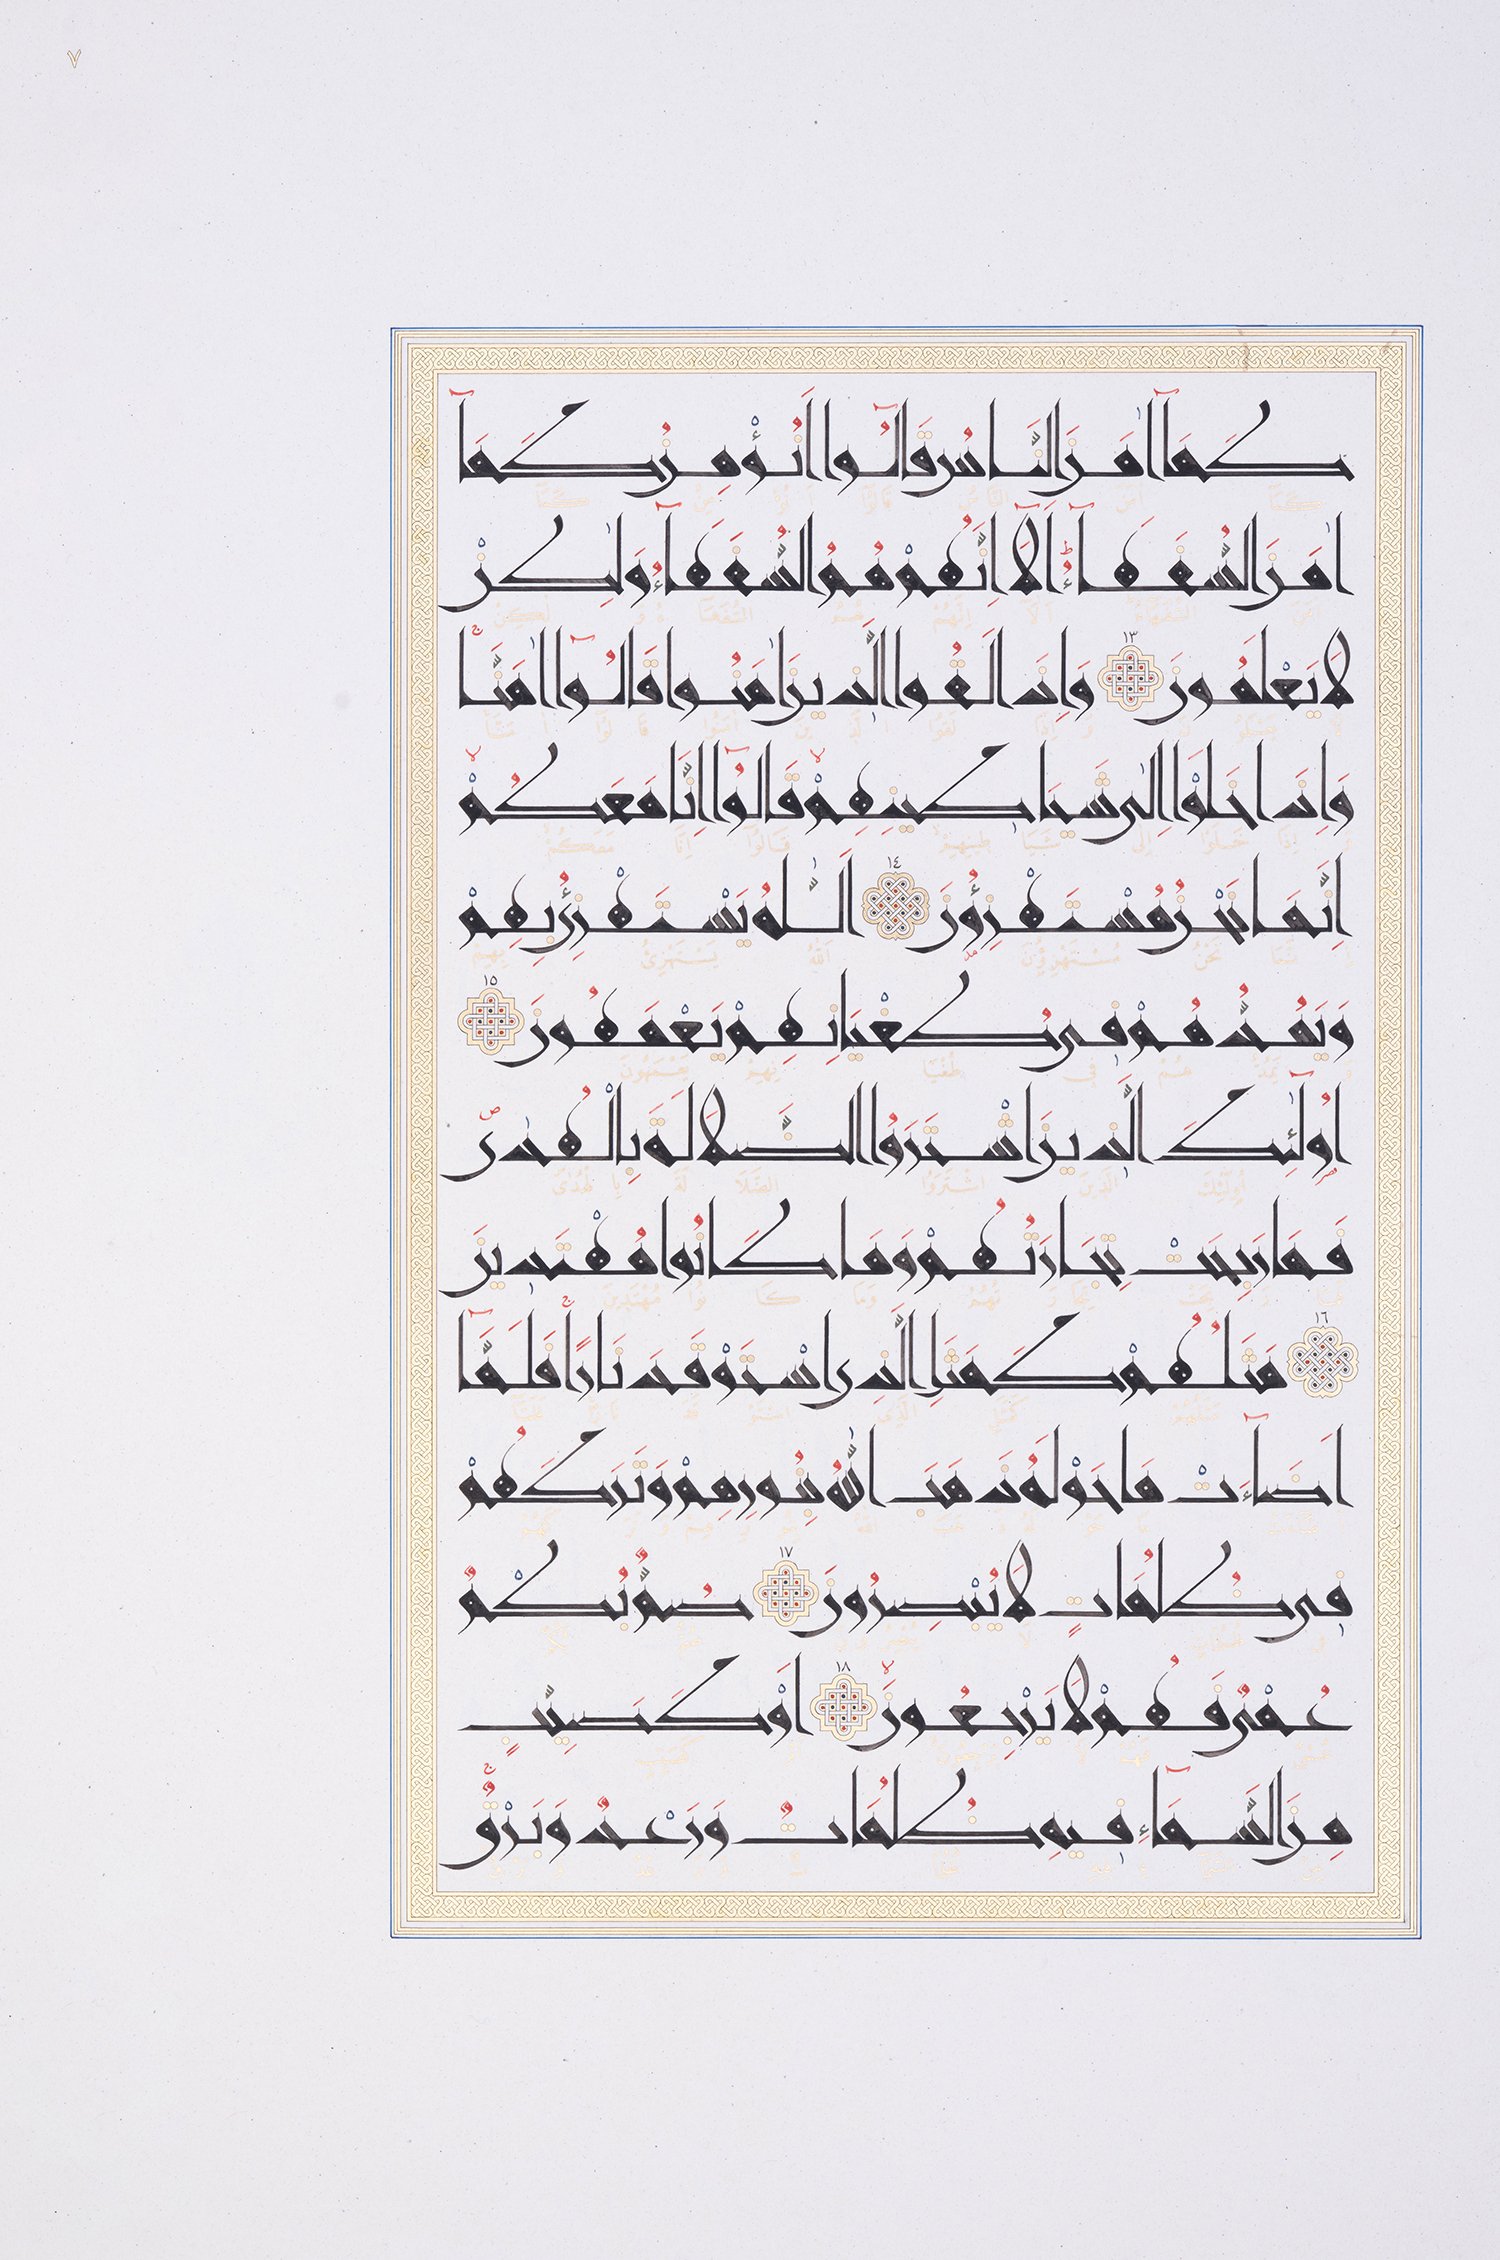 ٧
كَمَآ اٰمَنَ النَّاسُ قَالُوٓا اَنُؤْمِنُ كَمَآ
اٰمَنَ السُّفَهَآءُ ط اَلَآ اِنَّهُمْ هُمُ السُّفَهَآءُ وَلٰكِنْ
لَا يَعْلَمُونَ ١٣ وَاِذَا لَقُوا الَّذِينَ اٰمَنُوا قَالُوٓا اٰمَنَّا ج
وَاِذَا خَلَوْا اِلٰى شَيَاطِينِهِمْ لا قَالُوٓا اِنَّا مَعَكُمْ لا
اِنَّمَا نَحْنُ مُسْتَهْزِؤُنَ ١٤ اَللّٰهُ يَسْتَهْزِئُ بِهِمْ
وَيَمُدُّهُمْ فِى طُغْيَانِهِمْ يَعْمَهُونَ ١٥
اُولٰٓئِكَ الَّذِينَ اشْتَرَوُا الضَّلَالَةَ بِالْهُدٰى ص
فَمَا رَبِحَتْ تِجَارَتُهُمْ وَمَا كَانُوا مُهْتَدِينَ
١٦ مَثَلُهُمْ كَمَثَلِ الَّذِى اسْتَوْقَدَ نَارًا ج فَلَمَّآ
اَضَآءَتْ مَا حَوْلَهُ ذَهَبَ اللّٰهُ بِنُورِهِمْ وَتَرَكَهُمْ
فِى ظُلُمَاتٍ لَا يُبْصِرُونَ ١٧ صُمٌّ بُكْمٌ
عُمْىٌ فَهُمْ لَا يَرْجِعُونَ لا ١٨ اَوْ كَصَيِّبٍ
مِنَ السَّمَآءِ فِيهِ ظُلُمَاتٌ وَرَعْدٌ وَبَرْقٌ ج